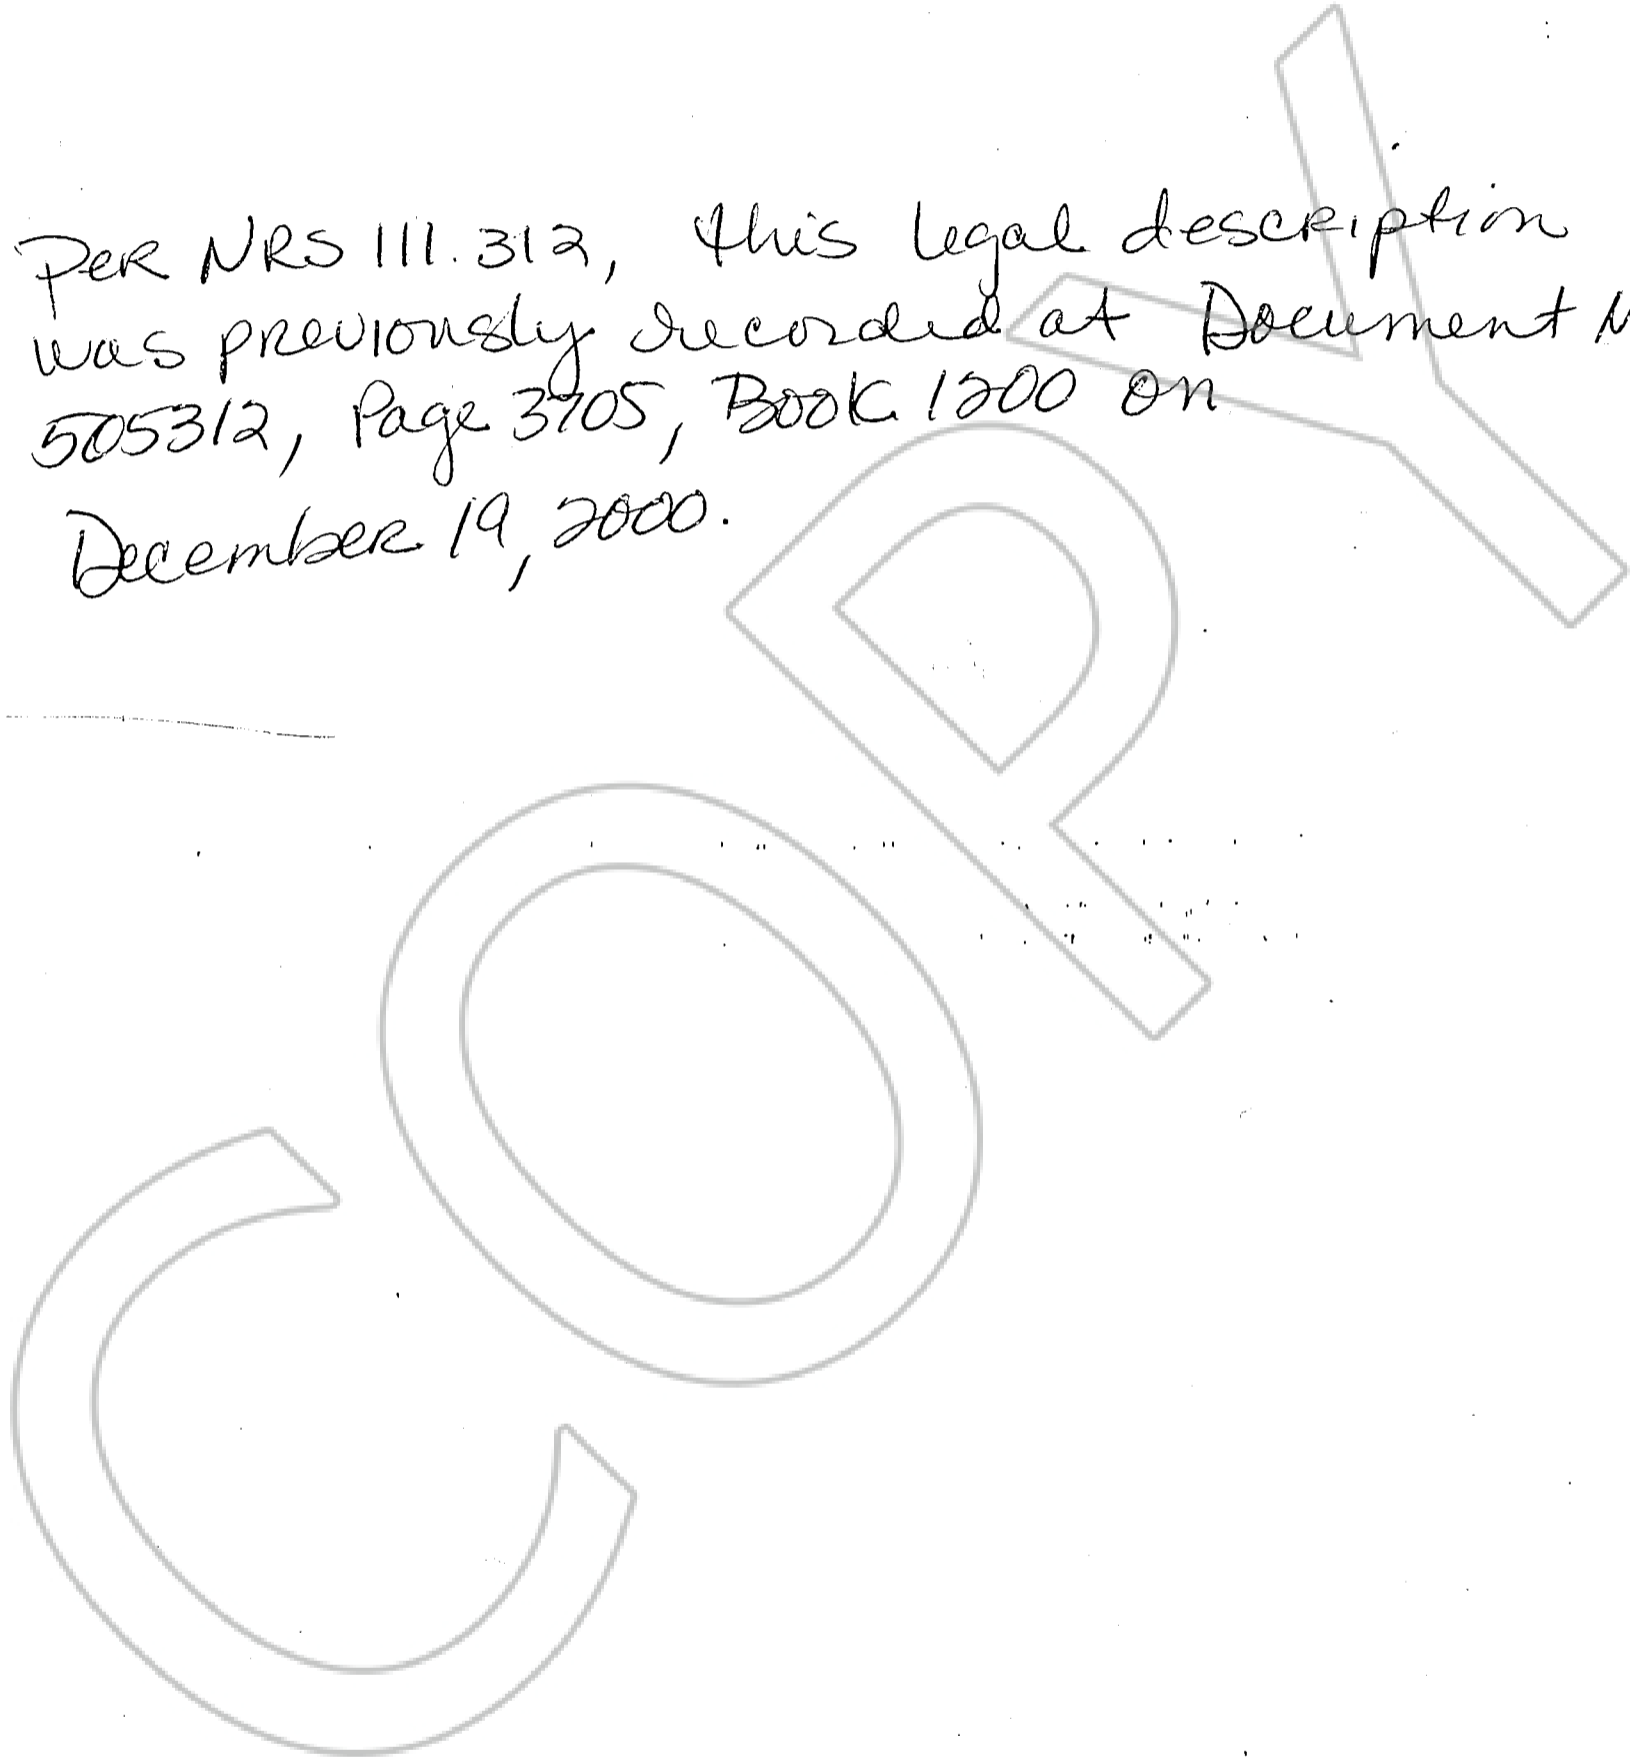 Per NRS 111.312, this legal description
was previously recorded at Document N
505312, Page 3705, Book 1200 on
December 19, 2000.
COPY